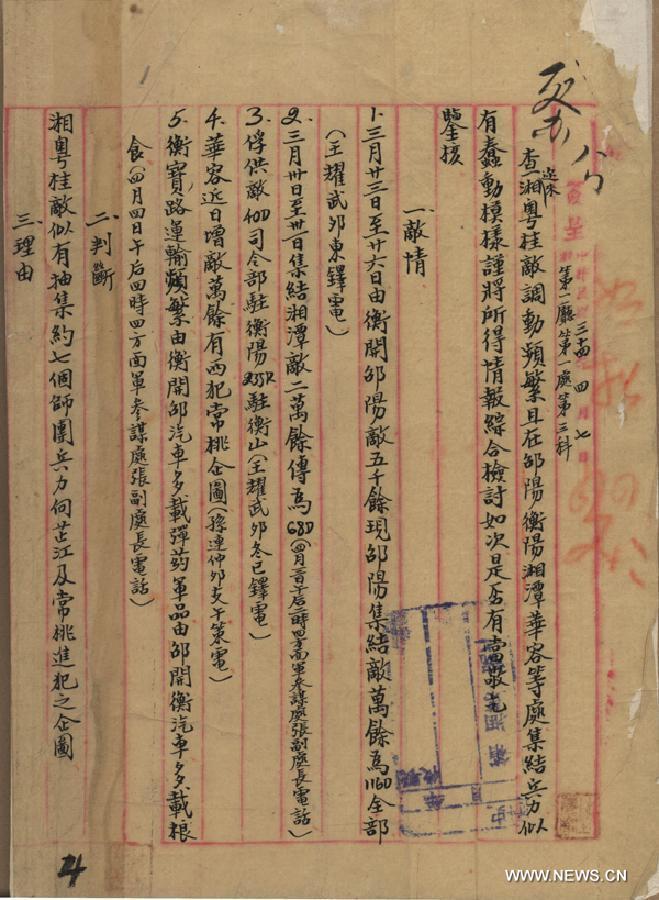 簽呈
三十四 四 月 七 日
第一廳第一處第三科
查近來湘粵桂敵調動頻繁且在邵陽衡陽湘潭華容等處集結兵力似
有蠢動模樣謹將所得情報綜合檢討如次是否有當敬乞
鑒核
一、敵情
1.三月廿三日至廿六日由衡開邵陽敵五千餘現邵陽集結敵萬餘為116D全部
(王耀武卯東鐸電)
2.三月卅日至卅一日集結湘潭敵二萬餘傳為68D(四月二日午后二時四方面軍參謀處張副處長電話)
3.俘供敵40D司令部駐衡陽235R駐衡山(王耀武卯冬已鐸電)
4.華容近日增敵萬餘有西犯常桃企圖(孫連仲卯支午策電)
5.衡寶路運輸頻繁由衡開邵汽車多載彈葯軍品由邵開衡汽車多載粮
食(四月四日午后四時四方面軍參謀處張副處長電話)
二、判斷
湘粵桂敵似有抽集約七個師團兵力向芷江及常桃進犯之企圖
三、理由
4
WWW.NEWS.CN